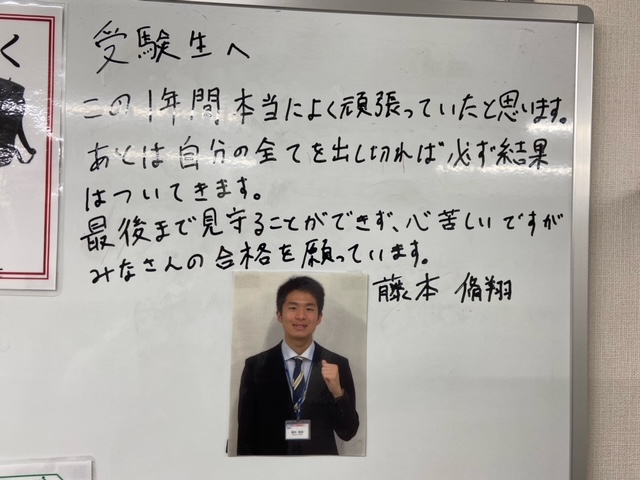 く
受験生へ
この1年間本当によく頑張っていたと思います。
あとは自分の全てを出し切れば必ず結果
はついてきます。
最後まで見守ることができず、心苦しいですが
みなさんの合格を願っています。
藤本 脩翔